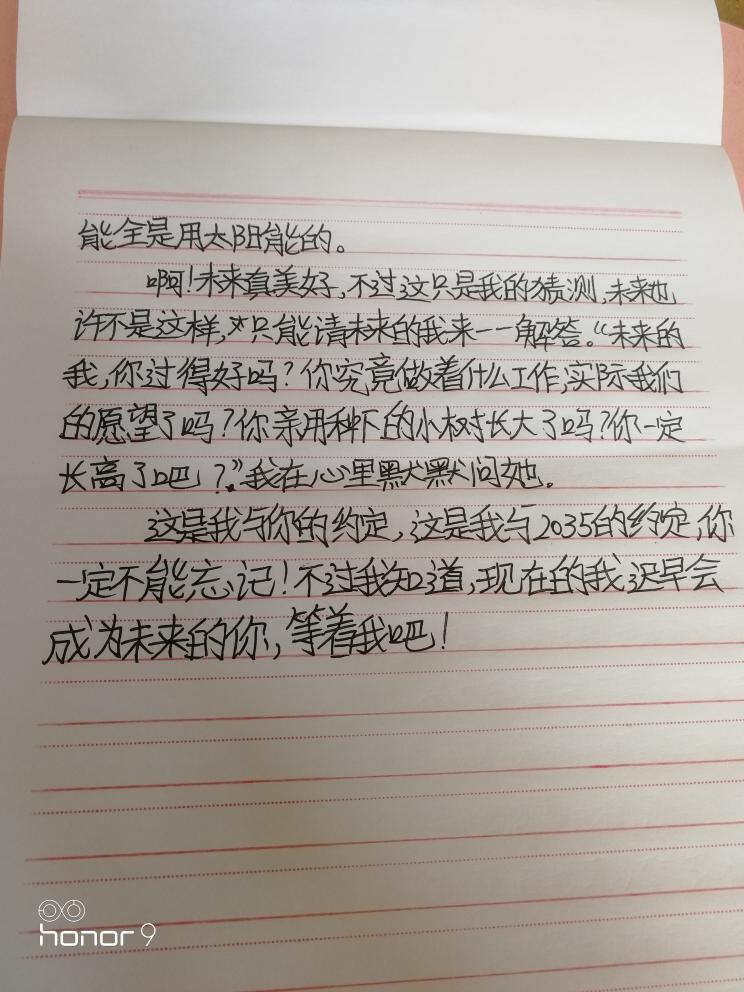 能全是用太阳能的。
啊!未来真美好,不过这只是我的猜测,未来也
许不是这样,只能请未来的我来一一解答。“未来的
我,你过得好吗?你究竟做着什么工作,实际我们
的愿望了吗?你亲用种下的小树长大了吗?你一定
长高了吧?”我在心里默默问她。
这是我与你的约定,这是我与2035的约定,你
一定不能忘记!不过我知道,现在的我迟早会
成为未来的你,等着我吧!
honor 9